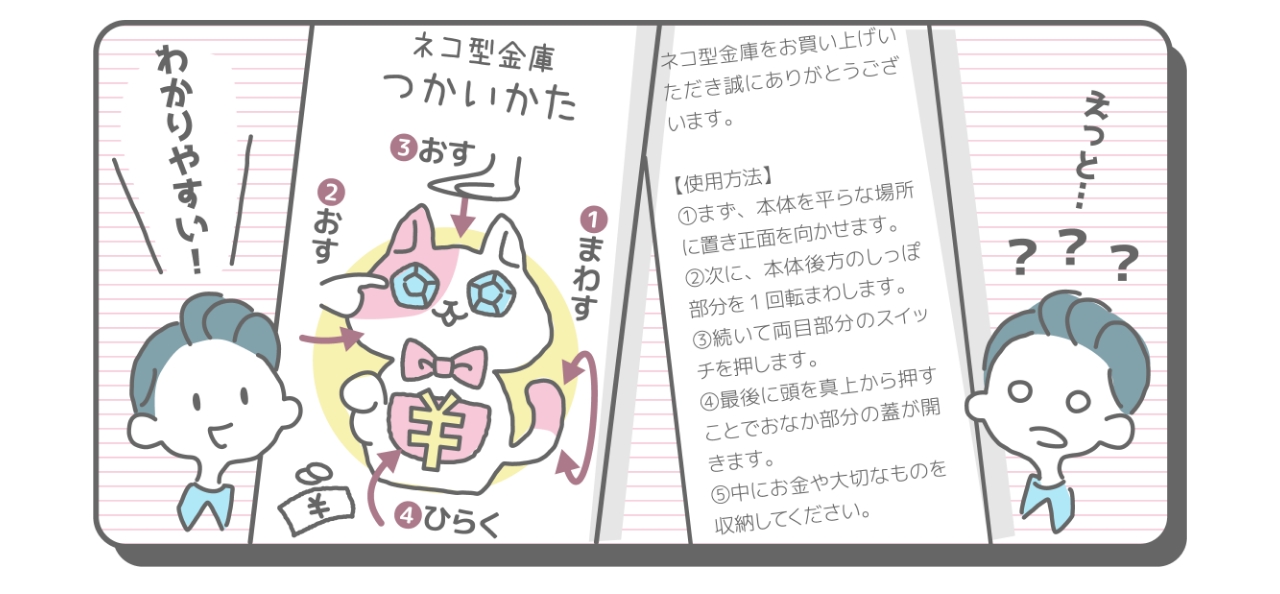 わかりやすい！
ネコ型金庫
つかいかた
❸おす
❷おす
❶まわす
¥
¥
❹ひらく
ネコ型金庫をお買い上げい
ただき誠にありがとうござ
います。
【使用方法】
①まず、本体を平らな場所
に置き正面を向かせます。
②次に、本体後方のしっぽ
部分を1回転まわします。
③続いて両目部分のスイッ
チを押します。
④最後に頭を真上から押す
ことでおなか部分の蓋が開
きます。
⑤中にお金や大切なものを
収納してください。
えっと…
? ? ?